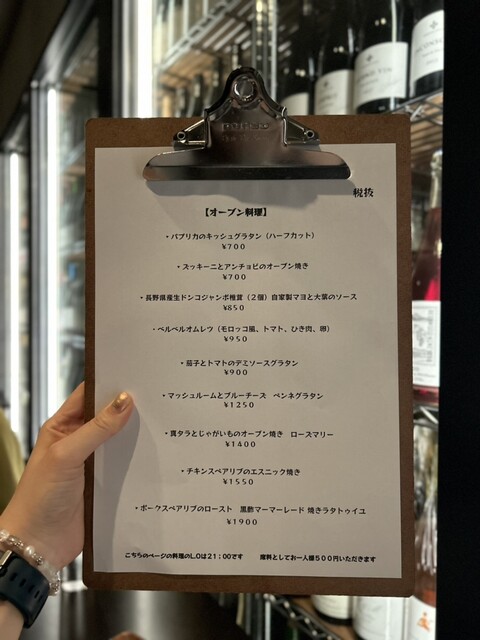 税抜
【オーブン料理】
・パプリカのキッシュグラタン（ハーフカット）
¥700
・ズッキーニとアンチョビのオーブン焼き
¥700
・長野県産生ドンコジャンボ椎茸（２個）自家製マヨと大葉のソース
¥850
・ベルベルオムレツ（モロッコ風、トマト、ひき肉、卵）
¥950
・茄子とトマトのデミソースグラタン
¥900
・マッシュルームとブルーチーズ　ペンネグラタン
¥1250
・真タラとじゃがいものオーブン焼き　ローズマリー
¥1400
・チキンスペアリブのエスニック焼き
¥1550
・ポークスペアリブのロースト　黒酢マーマーレード 焼きラタトゥイユ
¥1900
こちらのページの料理のL.Oは21：00です　　席料としてお一人様５００円いただきます